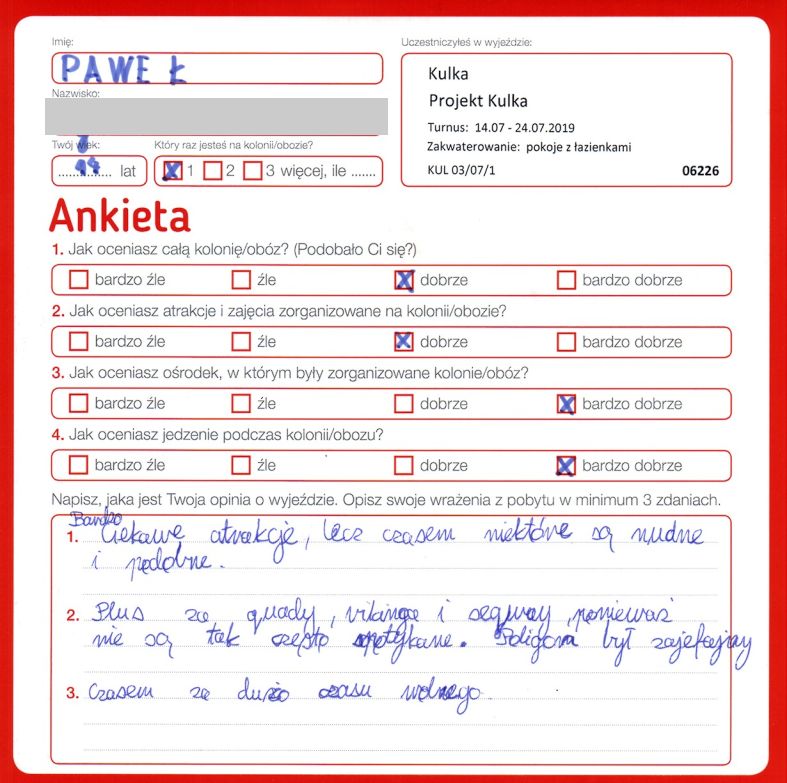 Imię:
PAWEŁ
Nazwisko:
Twój wiek:
lat
Który raz jesteś na kolonii/obozie?
X 1 2 3 więcej, ile .......
Uczestniczyłeś w wyjeździe:
Kulka
Projekt Kulka
Turnus: 14.07 - 24.07.2019
Zakwaterowanie: pokoje z łazienkami
KUL 03/07/1 06226
Ankieta
1. Jak oceniasz całą kolonię/obóz? (Podobało Ci się?)
bardzo źle źle X dobrze bardzo dobrze
2. Jak oceniasz atrakcje i zajęcia zorganizowane na kolonii/obozie?
bardzo źle źle X dobrze bardzo dobrze
3. Jak oceniasz ośrodek, w którym były zorganizowane kolonie/obóz?
bardzo źle źle dobrze X bardzo dobrze
4. Jak oceniasz jedzenie podczas kolonii/obozu?
bardzo źle źle dobrze X bardzo dobrze
Napisz, jaka jest Twoja opinia o wyjeździe. Opisz swoje wrażenia z pobytu w minimum 3 zdaniach.
Bardzo
1. Ciekawe atrakcje, lecz czasem niektóre są nudne
i podobne.
2. Plus za quady, i segway, ponieważ
nie są tak często spotykane. Poligon był zajefajny
3. Czasem za dużo czasu wolnego.